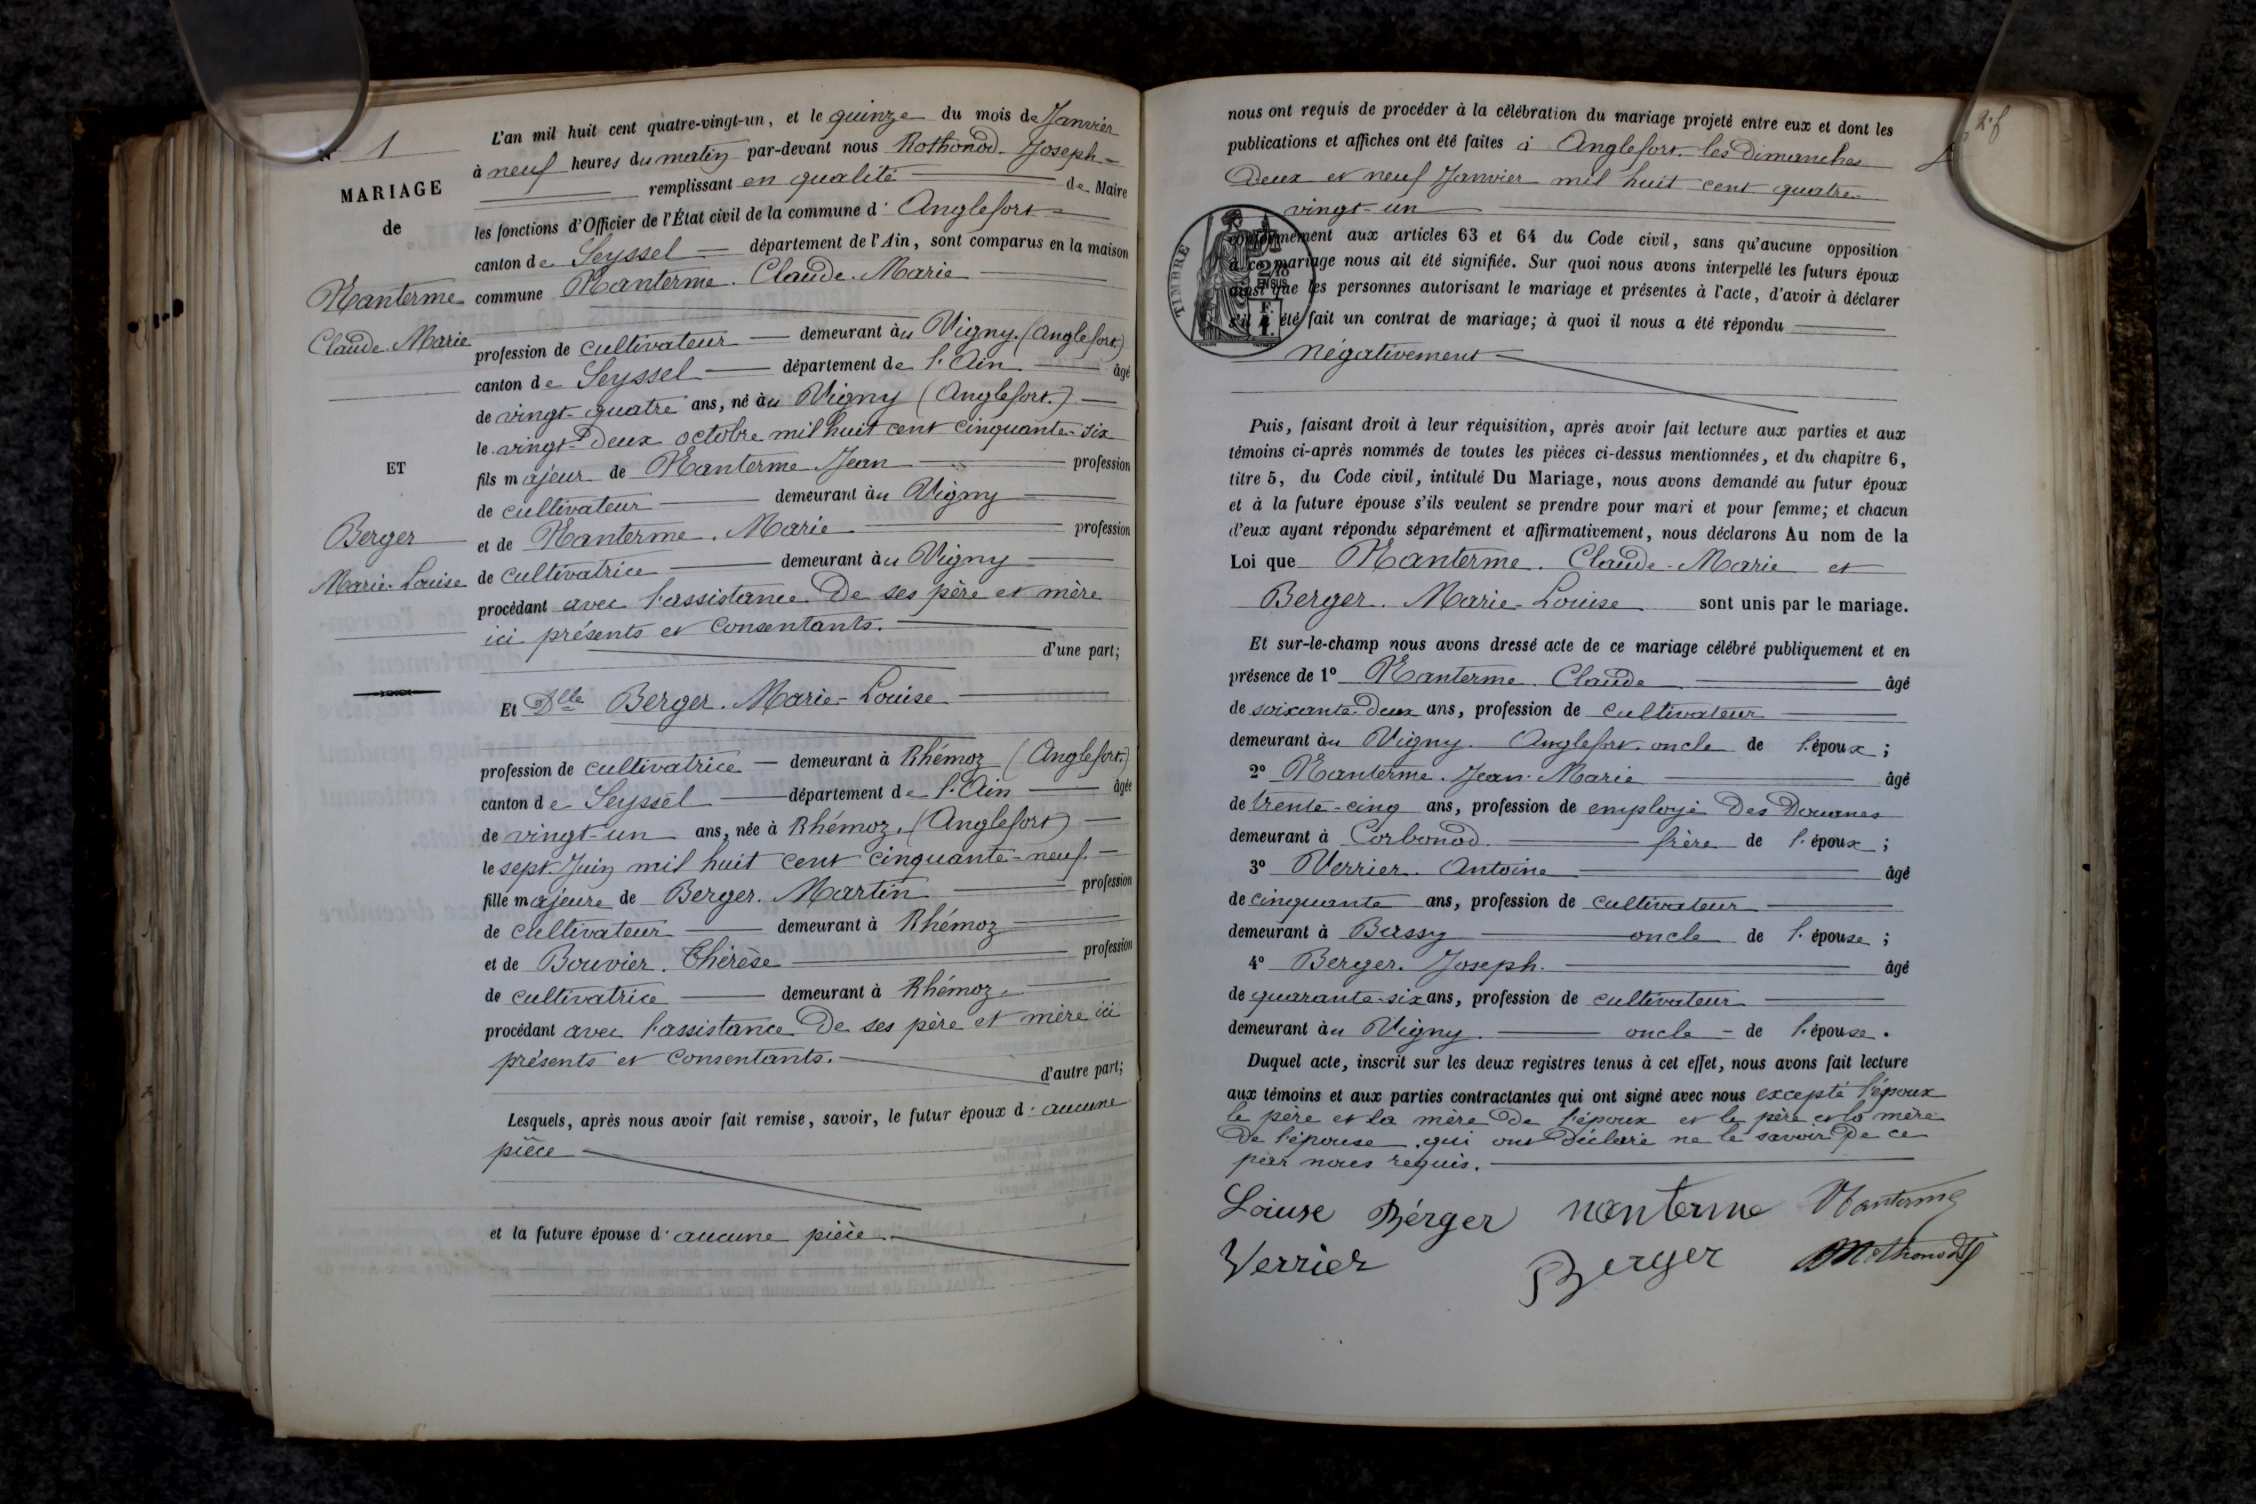 N° 1
MARIAGE
de
Nanterme
Claude-Marie
ET
Berger
Marie-Louise
L'an mil huit cent quatre-vingt-un, et le quinze du mois de Janvier
à neuf heures du matin par-devant nous Rothonod. Joseph-
remplissant en qualité de Maire
les fonctions d'Officier de l'État civil de la commune d'Anglefort
canton de Seyssel département de l'Ain, sont comparus en la maison
commune Nanterme. Claude-Marie
profession de cultivateur demeurant àu Vigny. (Anglefort)
canton de Seyssel département de l'Ain âgé
de vingt-quatre ans, né àu Vigny (Anglefort.)
le vingt-deux octobre mil huit cent cinquante-six
fils majeur de Nanterme Jean profession
de cultivateur demeurant àu Vigny
et de Nanterme. Marie profession
de cultivatrice demeurant àu Vigny
procédant avec l'assistance De ses père et mère
ici présents et consentants.
d'une part;
Et Dlle Berger. Marie-Louise
profession de cultivatrice demeurant à Rhémoz (Anglefort.)
canton de Seyssel département de l'Ain âgée
de vingt-un ans, née à Rhémoz. (Anglefort)
le sept Juin mil huit cent cinquante-neuf.
fille majeure de Berger. Martin profession
de cultivateur demeurant à Rhémoz
et de Bouvier. Thérèse profession
de cultivatrice demeurant à Rhémoz
procédant avec l'assistance De ses père et mère ici
présents et consentants.
d'autre part;
Lesquels, après nous avoir fait remise, savoir, le futur époux d'aucune
pièce
et la future épouse d'aucune pièce.
2.f
nous ont requis de procéder à la célébration du mariage projeté entre eux et dont les
publications et affiches ont été faites à Anglefort. les Dimanches
Deux et neuf Janvier mil huit cent quatre-
vingt-un
TIMBRE
conformément aux articles 63 et 64 du Code civil, sans qu'aucune opposition
à ce mariage nous ait été signifiée. Sur quoi nous avons interpellé les futurs époux
ainsi que les personnes autorisant le mariage et présentes à l'acte, d'avoir à déclarer
s'il a été fait un contrat de mariage; à quoi il nous a été répondu
négativement
Puis, faisant droit à leur réquisition, après avoir fait lecture aux parties et aux
témoins ci-après nommés de toutes les pièces ci-dessus mentionnées, et du chapitre 6,
titre 5, du Code civil, intitulé Du Mariage, nous avons demandé au futur époux
et à la future épouse s'ils veulent se prendre pour mari et pour femme; et chacun
d'eux ayant répondu séparément et affirmativement, nous déclarons Au nom de la
Loi que Nanterme. Claude-Marie et
Berger. Marie-Louise sont unis par le mariage.
Et sur-le-champ nous avons dressé acte de ce mariage célébré publiquement et en
présence de 1° Nanterme Claude âgé
de soixante-deux ans, profession de cultivateur
demeurant àu Vigny. Anglefort. oncle de l'époux;
2° Nanterme. Jean-Marie âgé
de trente-cinq ans, profession de employé Des Douanes
demeurant à Corbonod. frère de l'époux;
3° Verrier. Antoine âgé
de cinquante ans, profession de cultivateur
demeurant à Bassy oncle de l'épouse;
4° Berger. Joseph. âgé
de quarante-six ans, profession de cultivateur
demeurant àu Vigny. oncle de l'épouse.
Duquel acte, inscrit sur les deux registres tenus à cet effet, nous avons fait lecture
aux témoins et aux parties contractantes qui ont signé avec nous excepté l'époux
le père et la mère De l'époux et le père et la mère
De l'épouse, qui ont Déclaré ne le savoir De ce
par nous requis.
Loiuse Bérger nanterme Nanterme
Verrier Berger